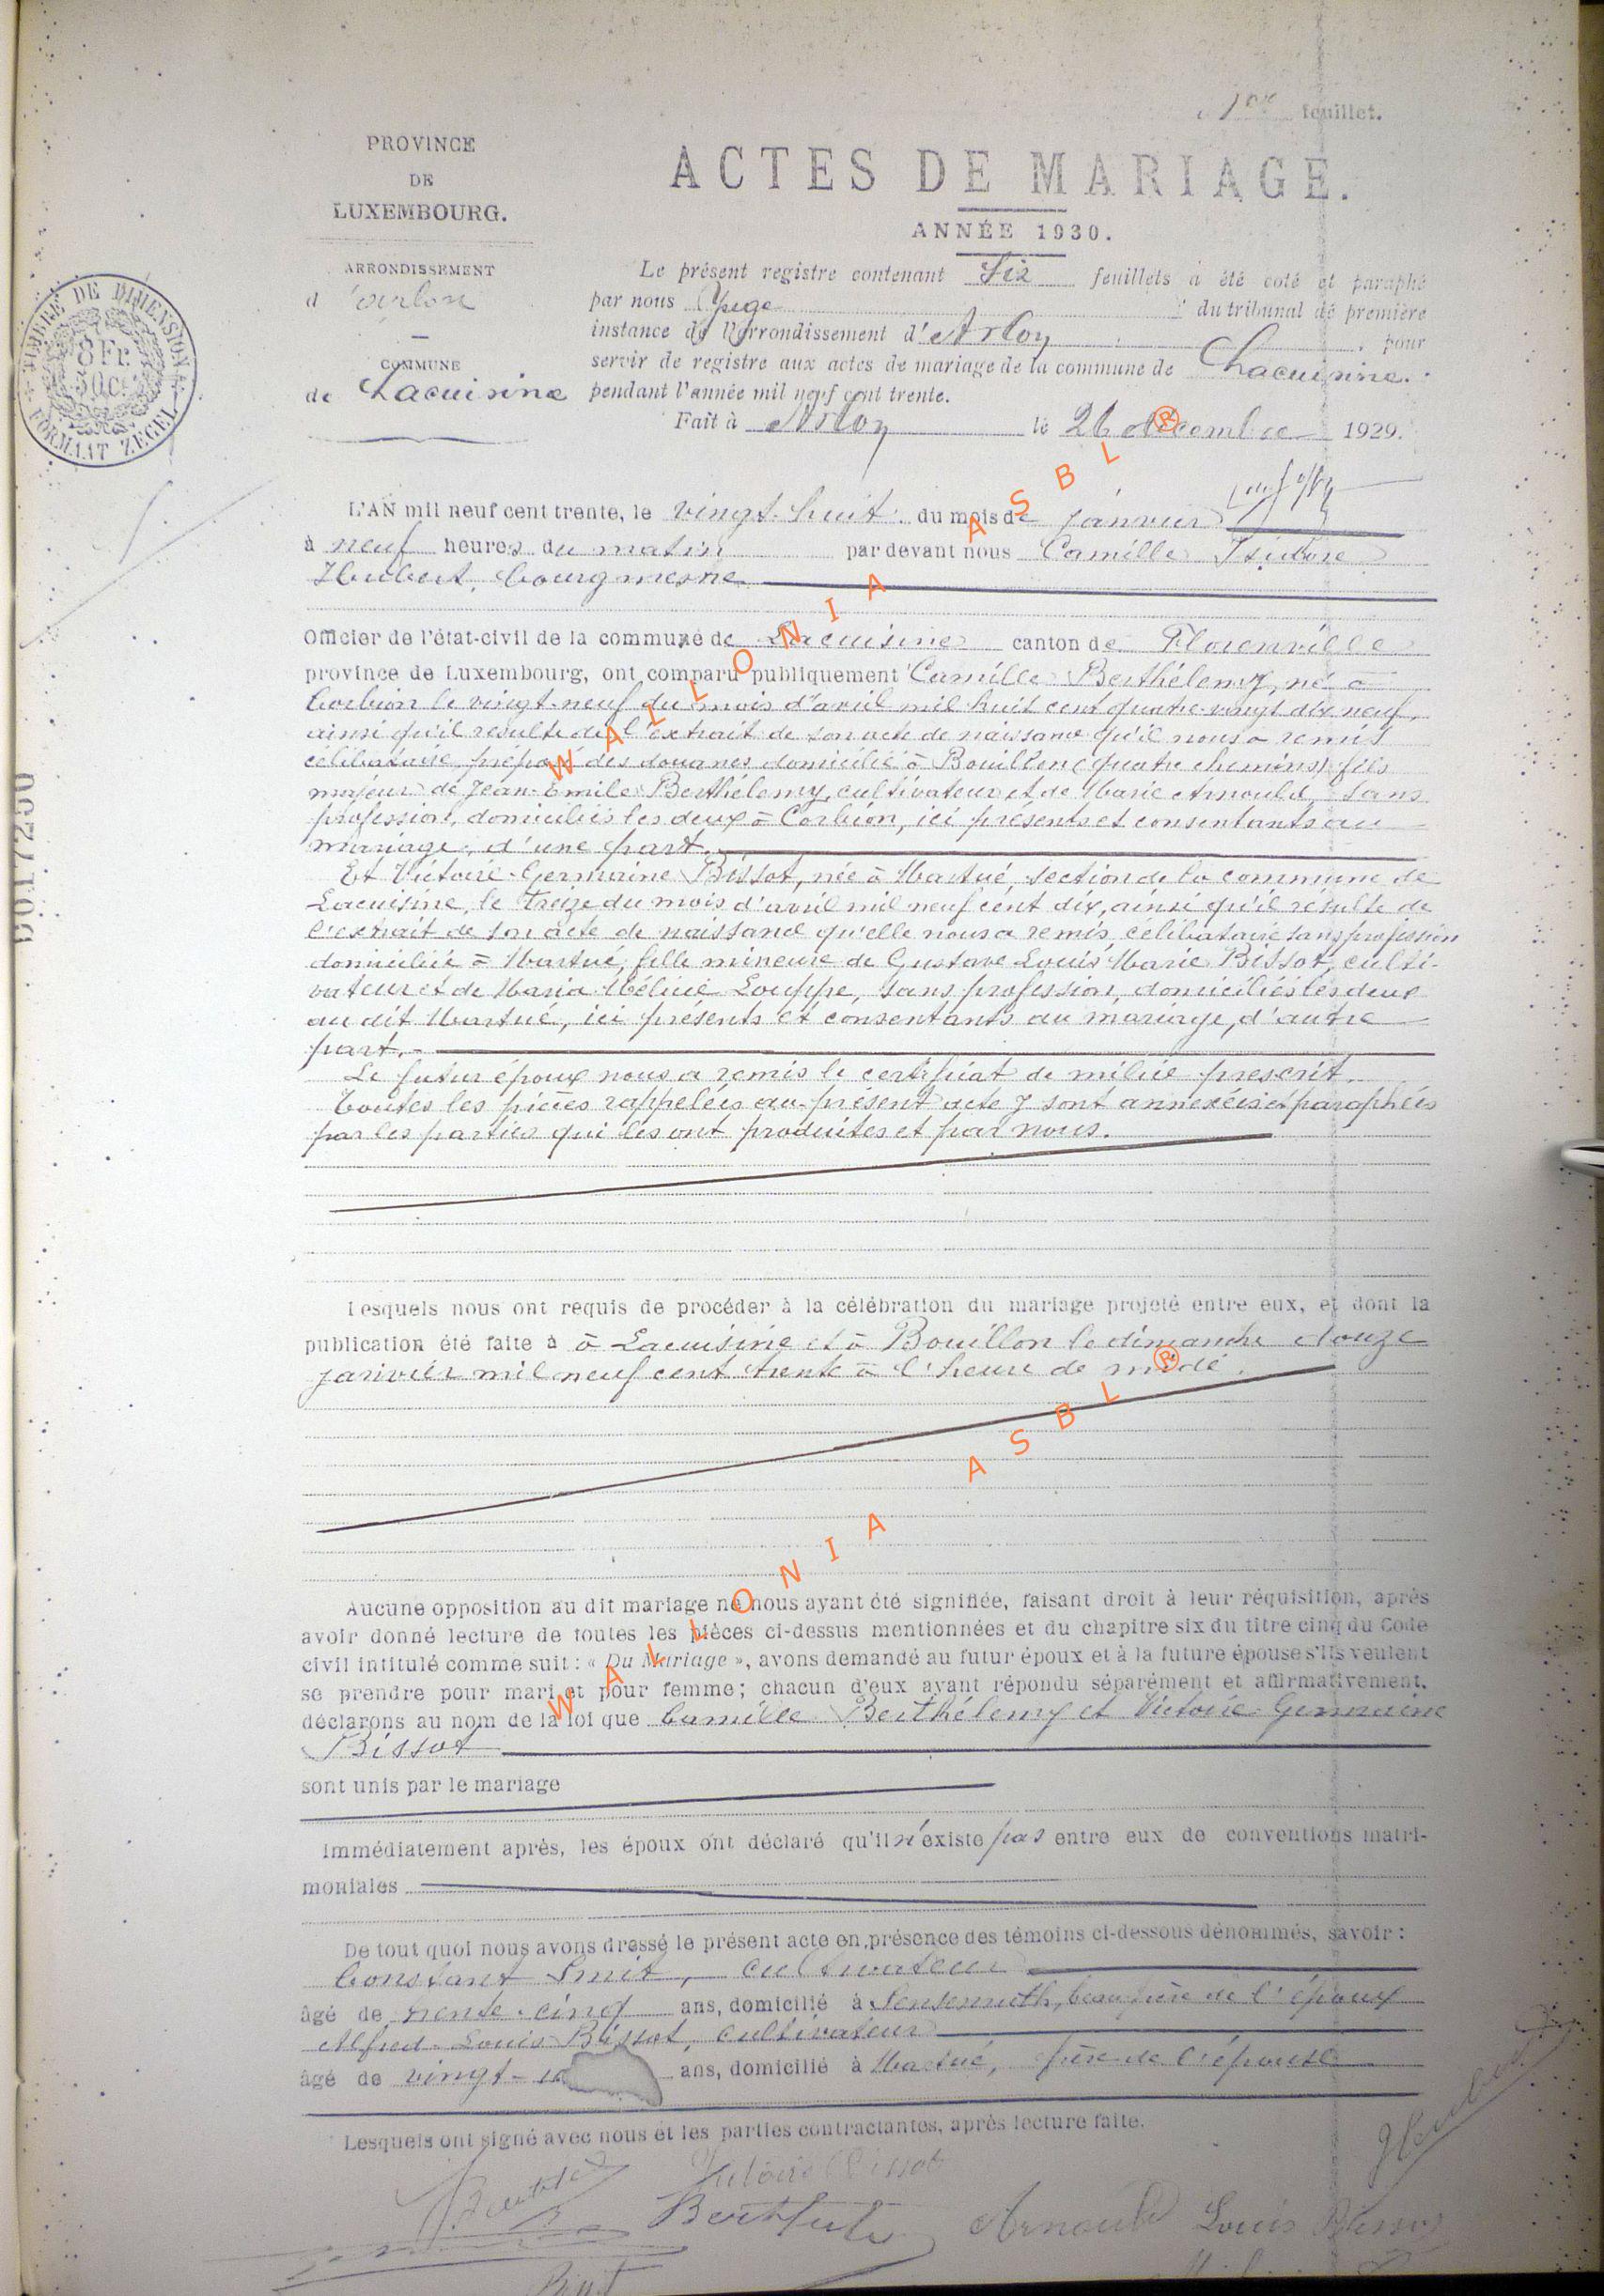 1er feuillet.
PROVINCE
DE
LUXEMBOURG.
ARRONDISSEMENT
d'Arlon
COMMUNE
de Lacuisine
TIMBRE DE DIMENSION
8 Fr.
50 Ces
FORMAAT ZEGEL
ACTES DE MARIAGE.
ANNÉE 1930.
Le présent registre contenant Six feuillets a été coté et paraphé
par nous du tribunal de première
instance de l'arrondissement d'Arlon, pour
servir de registre aux actes de mariage de la commune de Lacuisine.
pendant l'année mil neuf cent trente.
Fait à Arlon le 26 décembre 1929.
L'AN mil neuf cent trente, le vingt-huit du mois de janvier
à neuf heures du matin par devant nous Camille Isidore
Hubert, bourgmestre
Officier de l'état-civil de la commune de Lacuisine canton de Florenville
province de Luxembourg, ont comparu publiquement Camille Berthélemy, né à
Corbion le vingt-neuf du mois d'avril mil huit cent quatre-vingt dix neuf,
ainsi qu'il résulte de l'extrait de son acte de naissance qu'il nous a remis
célibataire, préposé des douanes domicilié à Bouillon (quatre chemins) fils
majeur de Jean-Emile Berthélemy, cultivateur et de Marie Arnould, sans
profession, domiciliés les deux à Corbion, ici présents et consentants au
mariage, d'une part.
Et Victoire-Germaine Bissot, née à Martué, section de la commune de
Lacuisine, le treize du mois d'avril mil neuf cent dix, ainsi qu'il résulte de
l'extrait de son acte de naissance qu'elle nous a remis, célibataire sans profession
domiciliée à Martué, fille mineure de Gustave Louis Marie Bissot, culti-
vateur et de Maria Louppe, sans profession, domiciliés les deux
au dit Martué, ici présents et consentants au mariage, d'autre
part.
Le futur époux nous a remis le certificat de milice prescrit.
Toutes les pièces rappelées au présent acte y sont annexées et paraphées
par les parties qui les ont produites et par nous.
Lesquels nous ont requis de procéder à la célébration du mariage projeté entre eux, et dont la
publication été faite à à Lacuisine et à Bouillon le dimanche douze
janvier mil neuf cent trente à l'heure de midi.
Aucune opposition au dit mariage ne nous ayant été signifiée, faisant droit à leur réquisition, après
avoir donné lecture de toutes les pièces ci-dessus mentionnées et du chapitre six du titre cinq du Code
civil intitulé comme suit : « Du Mariage », avons demandé au futur époux et à la future épouse s'ils veulent
se prendre pour mari et pour femme; chacun d'eux ayant répondu séparément et affirmativement,
déclarons au nom de la loi que Camille Berthélemy et Victoire Germaine
Bissot
sont unis par le mariage
Immédiatement après, les époux ont déclaré qu'il n'existe pas entre eux de conventions matri-
moniales
De tout quoi nous avons dressé le présent acte en présence des témoins ci-dessous dénommés, savoir :
Constant Smit, cultivateur
âgé de trente-cinq ans, domicilié à Sensenruth, beau frère de l'époux
Alfred-Louis Bissot, cultivateur
âgé de vingt- ans, domicilié à Martué, frère de l'épouse
Lesquels ont signé avec nous et les parties contractantes, après lecture faite.
Hubert
Victoire Bissot
Arnould Louis Bissot
WALLONIA ASBL ®
WALLONIA ASBL ®